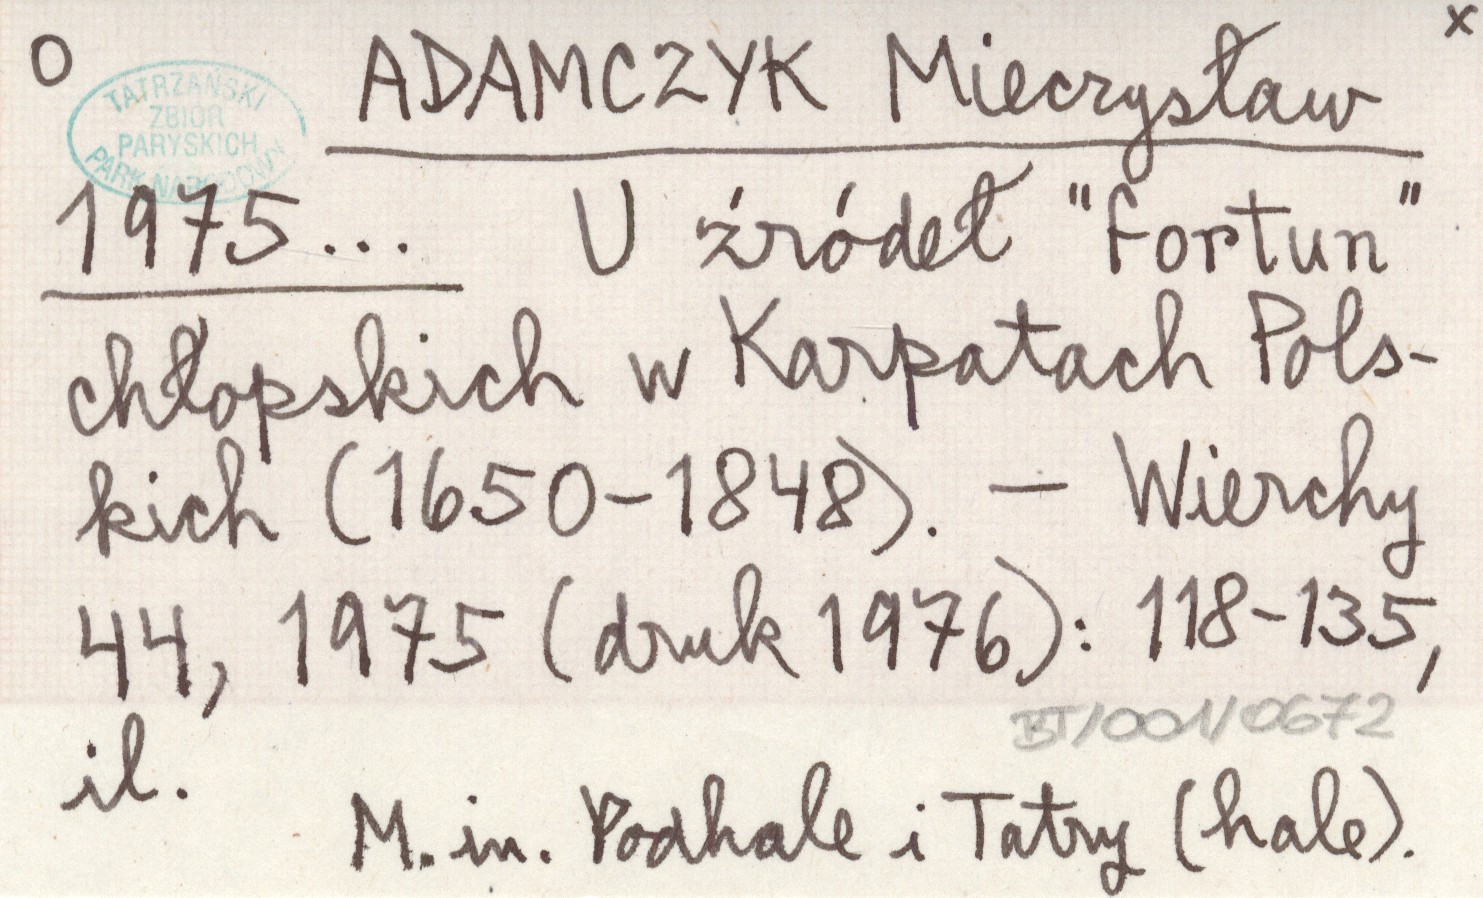 O ADAMCZYK Mieczysław x
TATRZAŃSKI
ZBIÓR
PARYSKICH
PARK NARODOWY
1975... U źródeł "fortun"
chłopskich w Karpatach Pols-
kich (1650-1848). — Wierchy
44, 1975 (druk 1976): 118-135,
BT/001/0672
il.
M. in. Podhale i Tatry (hale).